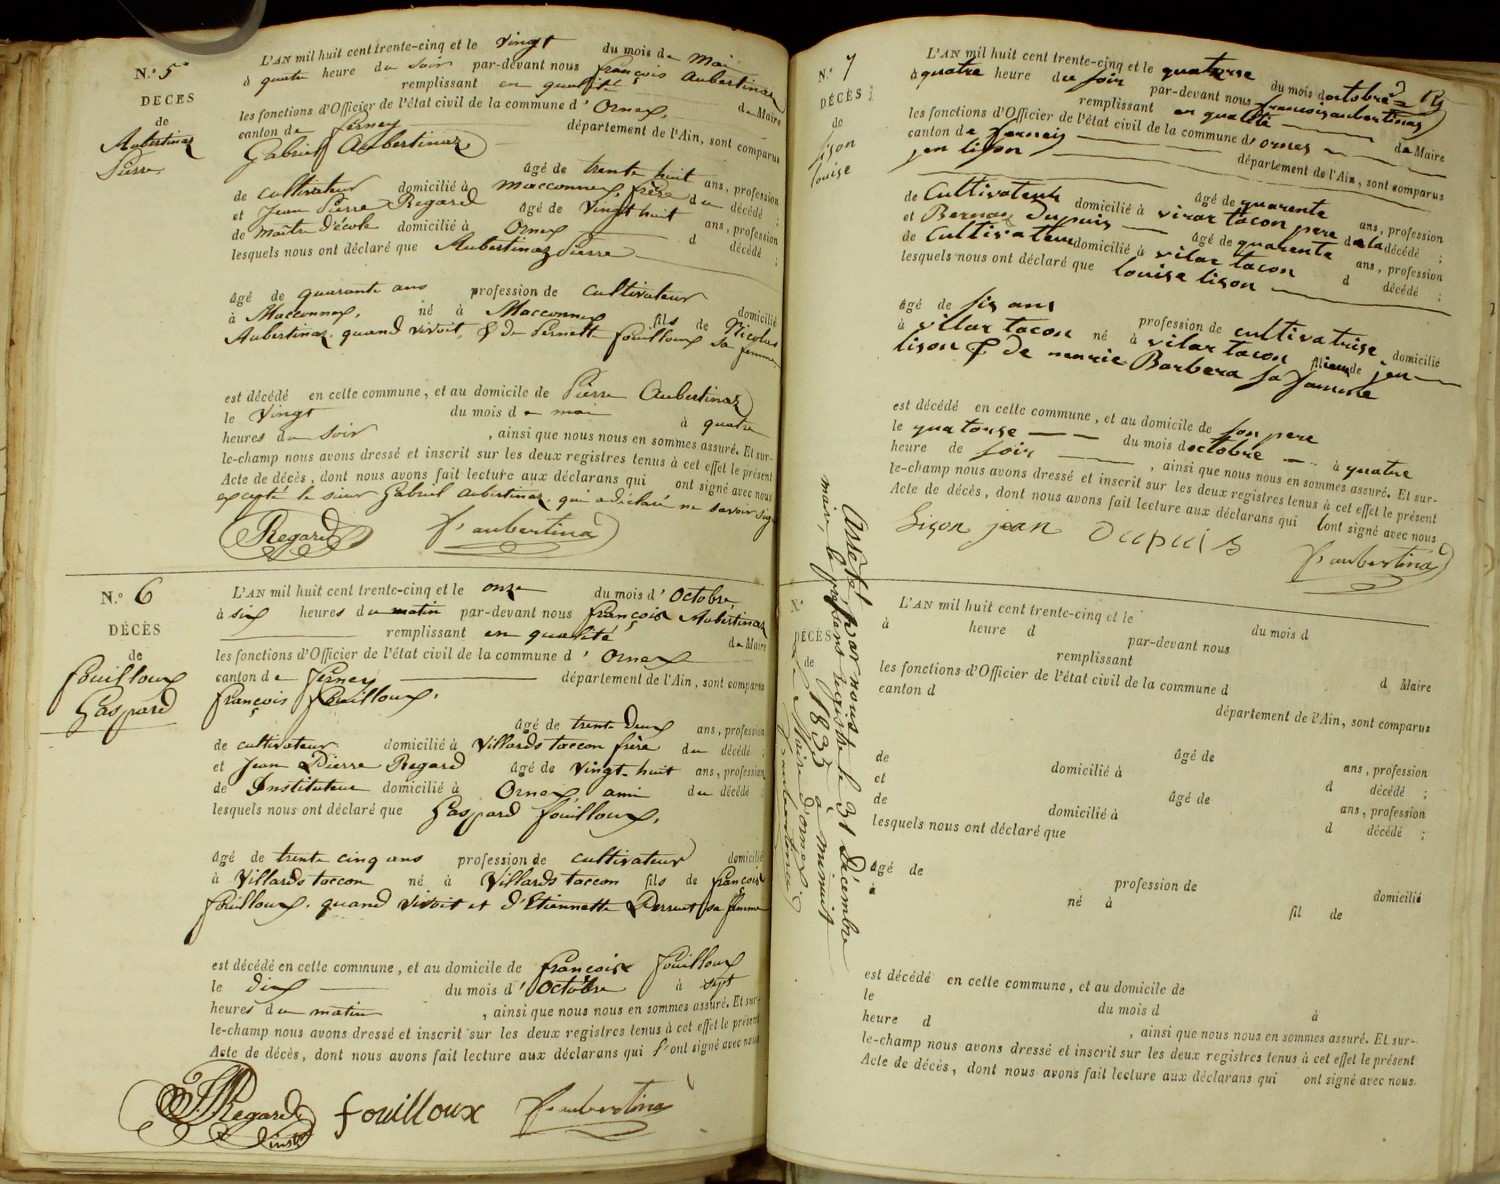 N.º 5
DECES
de
Aubertinaz
Pierre
L'AN mil huit cent trente-cinq et le vingt du mois de Mai
à quatre heure du soir par-devant nous françois Aubertinaz
remplissant en qualité de Maire
les fonctions d'Officier de l'état civil de la commune d'Ornex,
canton de ferney département de l'Ain, sont comparus
Gabriel Aubertinaz
âgé de trente huit ans, profession
de cultivateur domicilié à Macconnex, frère du décédé ;
et Jean Pierre Regard âgé de vingt huit ans, profession
de maître d'école domicilié à Ornex d décédé ;
lesquels nous ont déclaré que Aubertinaz Pierre
âgé de quarante ans profession de cultivateur domicilié
à Macconnex, né à Macconnex fils de Nicolas
Aubertinaz quand vivoit, & de Pernette fouilloux sa femme
est décédé en cette commune, et au domicile de Pierre Aubertinaz
le vingt du mois de mai à quatre
heures du soir , ainsi que nous nous en sommes assuré. Et sur-
le-champ nous avons dressé et inscrit sur les deux registres tenus à cet effet le présent
Acte de décès, dont nous avons fait lecture aux déclarans qui ont signé avec nous
excepté le sieur Gabriel Aubertinaz qui a déclaré ne savoir sig
Regard f s aubertinaz
N.º 6
DÉCÈS
de
fouilloux
Gaspard
L'AN mil huit cent trente-cinq et le onze du mois d'Octobre
à six heures du matin par-devant nous françois Aubertinaz
remplissant en qualité de Maire
les fonctions d'Officier de l'état civil de la commune d'Ornex
canton de Ferney département de l'Ain, sont comparus
françois fouilloux,
âgé de trente deux ans, profession
de cultivateur domicilié à Villards taccon frère du décédé ;
et Jean Pierre Regard âgé de vingt-huit ans, profession
de Instituteur domicilié à Ornex ami du décédé ;
lesquels nous ont déclaré que Gaspard fouilloux,
âgé de trente cinq ans profession de cultivateur domicilié
à Villards taccon né à Villards taccon fils de françois
fouilloux, quand vivoit et d'Etiennette sa femme
est décédé en cette commune, et au domicile de françois fouilloux
le dix du mois d'Octobre à sept
heures du matin , ainsi que nous nous en sommes assuré. Et sur-
le-champ nous avons dressé et inscrit sur les deux registres tenus à cet effet le présent
Acte de décès, dont nous avons fait lecture aux déclarans qui ont signé avec nous
Regard fouilloux f s aubertinaz
inst
N.º 7
DÉCÈS
de
lison
louise
L'AN mil huit cent trente-cinq et le quatorse du mois doctobre
à quatre heure du soir par-devant nous francois aubertinaz
remplissant en qualité de Maire
les fonctions d'Officier de l'état civil de la commune d'ornex
canton de fernex département de l'Ain, sont comparus
jen lison
âgé de quarente ans, profession
de Cultivateur domicilié à vilar tacon pere de la décédé ;
et Bernar dupuis âgé de quarente ans, profession
de Cultivateur domicilié à vilar tacon d décédé ;
lesquels nous ont déclaré que louise lison
âgé de sis ans profession de cultivatrise domicilié
à vilar tacon né à vilar tacon fil de jen
lison & de marie Barbera sa famme
est décédé en cette commune, et au domicile de son pere
le quatorse du mois doctobre à quatre
heure de soir , ainsi que nous nous en sommes assuré. Et sur-
le-champ nous avons dressé et inscrit sur les deux registres tenus à cet effet le présent
Acte de décès, dont nous avons fait lecture aux déclarans qui l ont signé avec nous
Lison jean Dupuis f s aubertinaz
Arrêté par nous
maire, le présent registre le 31 Décembre
1835 à minuit
Le Maire d'ornex
f s aubertinaz
N.º
DÉCÈS
de
L'AN mil huit cent trente-cinq et le du mois d
à heure d par-devant nous
remplissant d Maire
les fonctions d'Officier de l'état civil de la commune d
canton d département de l'Ain, sont comparus
âgé de ans, profession
de domicilié à d décédé ;
et âgé de ans, profession
de domicilié à d décédé ;
lesquels nous ont déclaré que
âgé de profession de domicilié
à né à fil de
est décédé en cette commune, et au domicile de
le du mois d à
heure d , ainsi que nous nous en sommes assuré. Et sur-
le-champ nous avons dressé et inscrit sur les deux registres tenus à cet effet le présent
Acte de décès, dont nous avons fait lecture aux déclarans qui ont signé avec nous.